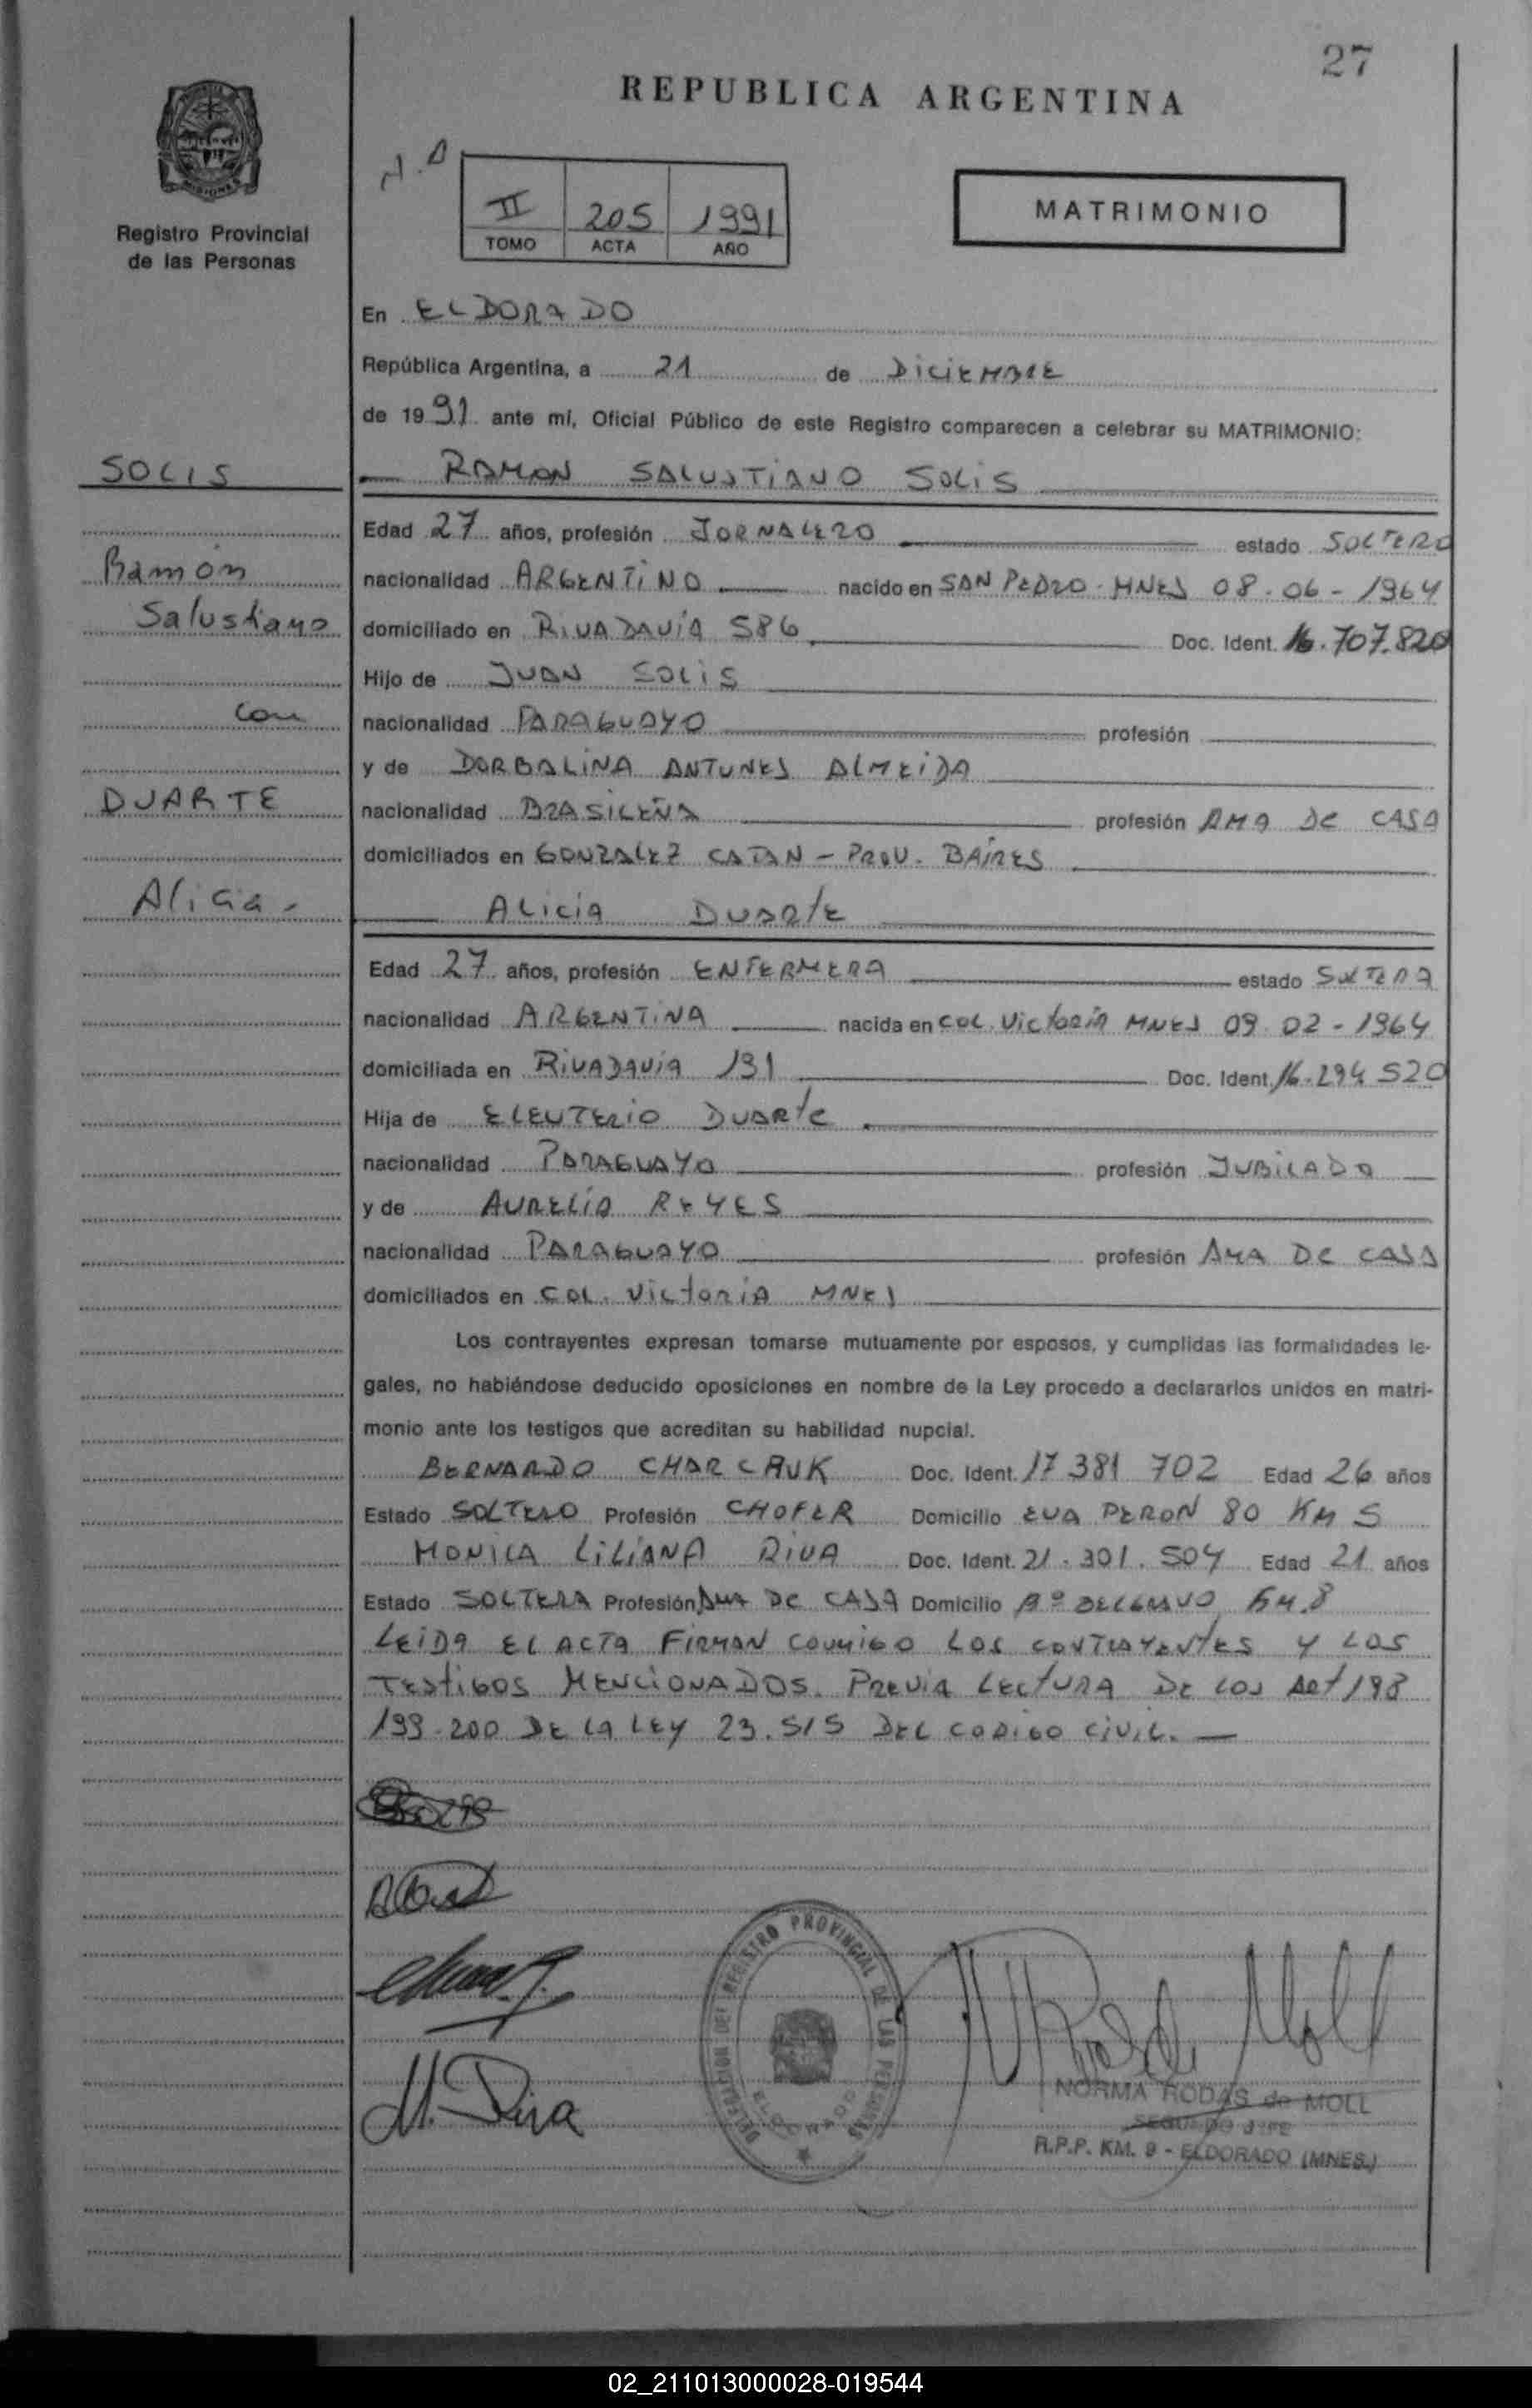 27
REPUBLICA ARGENTINA
Registro Provincial
de las Personas
II 205 1991
TOMO ACTA AÑO
MATRIMONIO
En ELDORADO
República Argentina, a 21 de DICIEMBRE
de 1991 ante mí, Oficial Público de este Registro comparecen a celebrar su MATRIMONIO:
SOLIS
Ramón
Salustiano
con
DUARTE
Alicia.
RAMON SALUSTIANO SOLIS
Edad 27 años, profesión JORNALERO estado SOLTERO
nacionalidad ARGENTINO nacido en SAN PEDRO - MNES 08-06-1964
domiciliado en RIVADAVIA 586 Doc. Ident. 16.707.820
Hijo de JUAN SOLIS
nacionalidad PARAGUAYO profesión
y de DORBALINA ANTUNES ALMEIDA
nacionalidad BRASILEÑA profesión AMA DE CASA
domiciliados en GONZALEZ CATAN - PROV. BAIRES
ALICIA DUARTE
Edad 27 años, profesión ENFERMERA estado SOLTERA
nacionalidad ARGENTINA nacida en COL. VICTORIA MNES 09-02-1964
domiciliada en RIVADAVIA 131 Doc. Ident. 16.294 520
Hija de ELEUTERIO DUARTE
nacionalidad PARAGUAYO profesión JUBILADO
y de AURELIA REYES
nacionalidad PARAGUAYO profesión AMA DE CASA
domiciliados en COL. VICTORIA MNES
Los contrayentes expresan tomarse mutuamente por esposos, y cumplidas las formalidades le-
gales, no habiéndose deducido oposiciones en nombre de la Ley procedo a declararlos unidos en matri-
monio ante los testigos que acreditan su habilidad nupcial.
BERNARDO CHARCAUK Doc. Ident. 17 381 702 Edad 26 años
Estado SOLTERO Profesión CHOFER Domicilio EVA PERON 80 KM 5
MONICA LILIANA RIVA Doc. Ident. 21.301.504 Edad 21 años
Estado SOLTERA Profesión AMA DE CASA Domicilio Bº BELGRANO KM.8
LEIDA EL ACTA FIRMAN CONMIGO LOS CONTRAYENTES Y LOS
TESTIGOS MENCIONADOS. PREVIA LECTURA DE LOS ART 198
199-200 DE LA LEY 23.515 DEL CODIGO CIVIL.
DELEGACION DEL REGISTRO PROVINCIAL DE LAS PERSONAS
ELDORADO
NORMA RODAS de MOLL
SEGUNDO JEFE
R.P.P. KM. 9 - ELDORADO (MNES.)
02_211013000028-019544